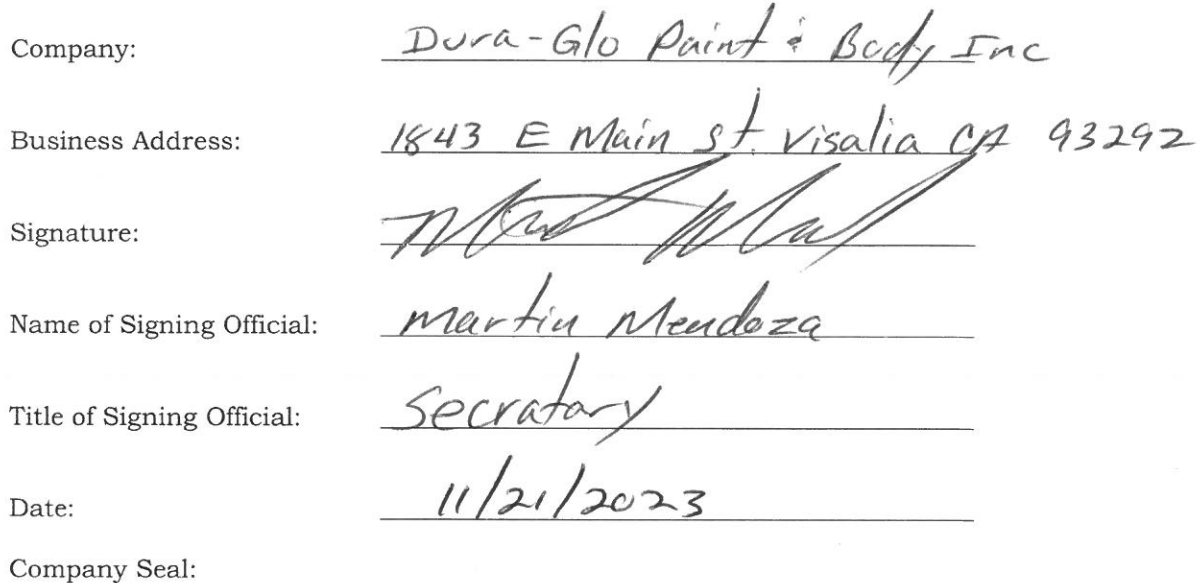 Company: Dura-Glo Paint & Body Inc
Business Address: 1843 E Main St. Visalia CA 93292
Signature:
Name of Signing Official: Martin Mendoza
Title of Signing Official: Secratary
Date: 11/21/2023
Company Seal: